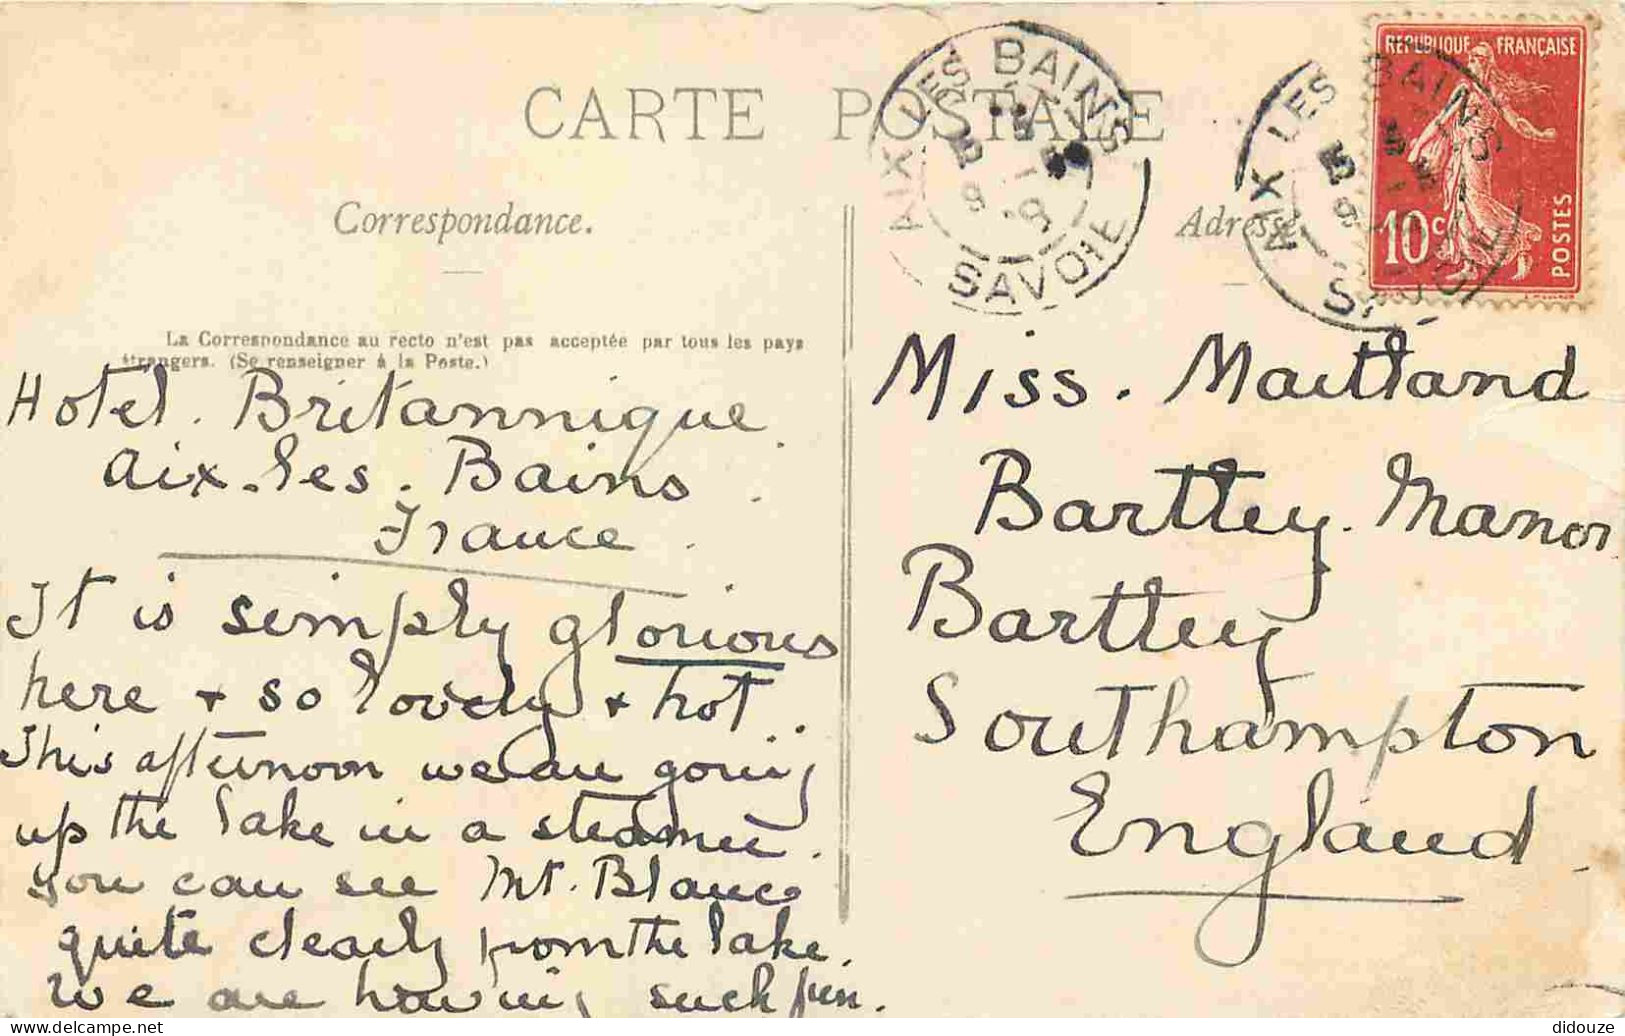 CARTE POSTALE
Correspondance.
Adresse.
La Correspondance au recto n'est pas acceptée par tous les pays
étrangers. (Se renseigner à la Poste.)
Hotel. Britannique.
Aix-les-Bains.
France.
It is simply glorious
here + so lovely + hot.
This afternoon we are going
up the lake in a steamer.
You can see Mt. Blanc
quite clearly from the lake.
We are having such fun.
AIX LES BAINS
SAVOIE
AIX LES BAINS
SAVOIE
REPUBLIQUE FRANÇAISE
10c
POSTES
Miss. Maitland
Bartley. Manor
Bartley
Southampton
England.
delcampe.net
didouze